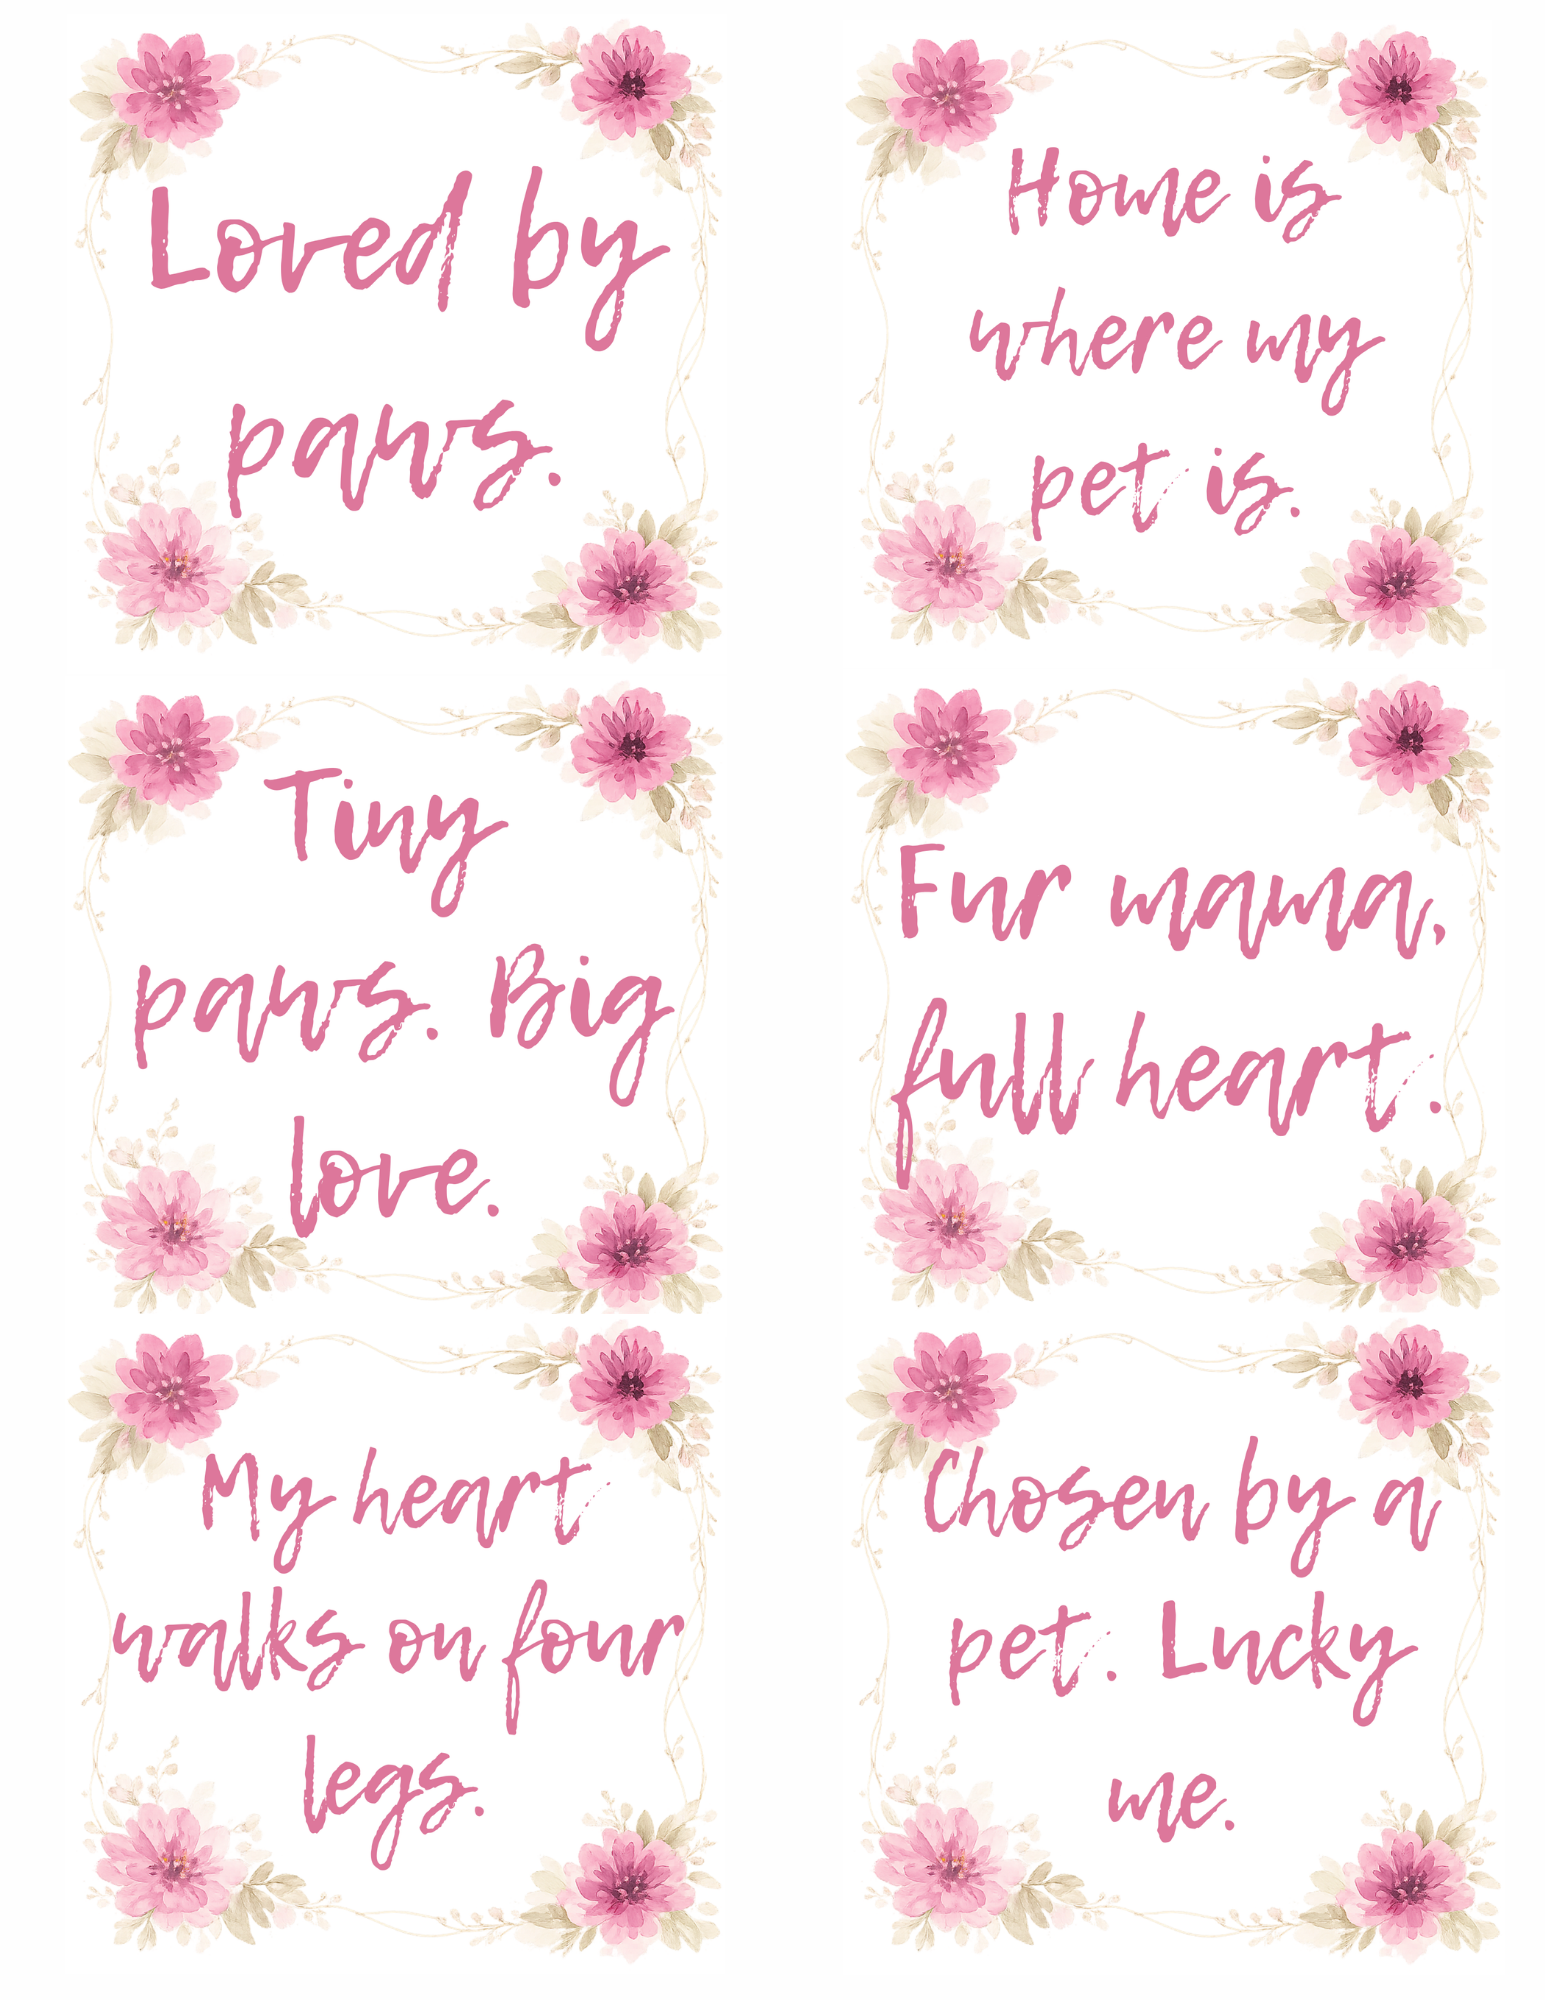 Loved by
paws.
Home is
where my
pet is.
Tiny
paws. Big
love.
Fur mama,
full heart.
My heart
walks on four
legs.
Chosen by a
pet. Lucky
me.